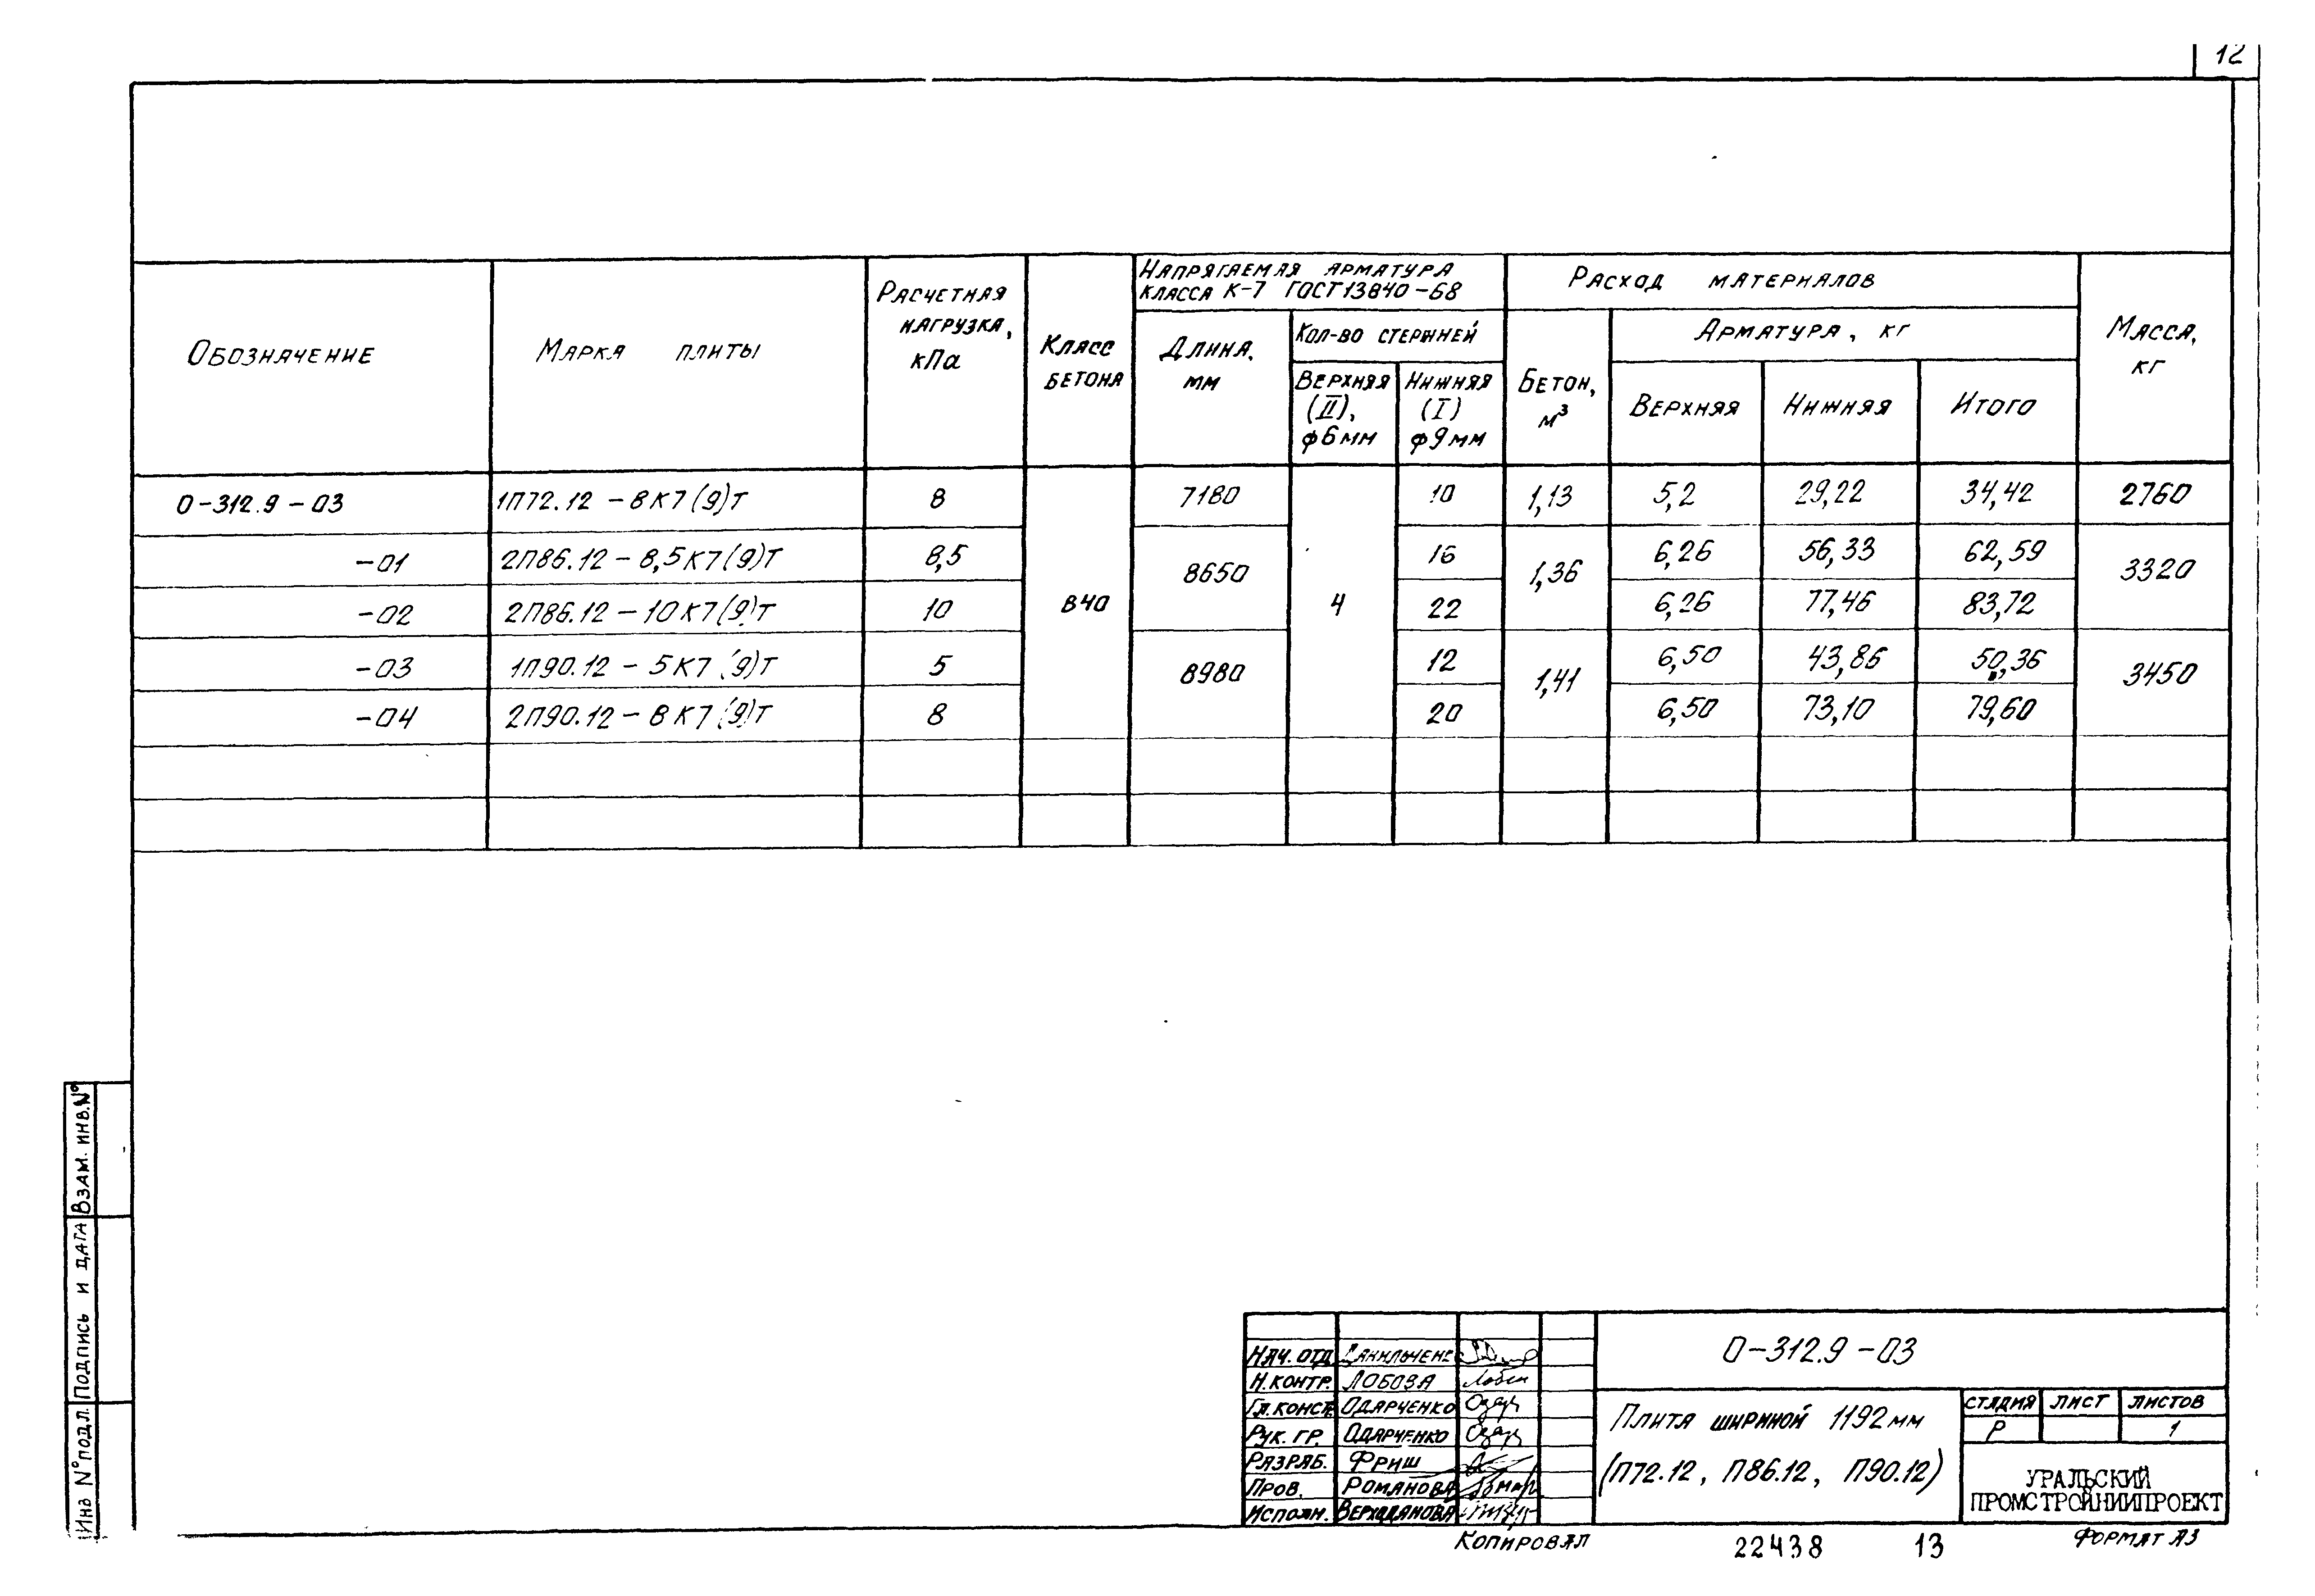 12
Обозначение
Марка плиты
Расчетная нагрузка, кПа
Класс бетона
Напрягаемая арматура
класса К-7 ГОСТ 13840-68
Длина, мм
Кол-во стержней
Верхняя (II), ф6мм
Нижняя (I) ф9мм
Расход материалов
Бетон, м³
Арматура, кг
Верхняя
Нижняя
Итого
Масса, кг
0-312.9-03 1П72.12-8К7(9)Т 8 В40 7180 4 10 1,13 5,2 29,22 34,42 2760
-01 2П86.12-8,5К7(9)Т 8,5 8650 16 1,36 6,26 56,33 62,59 3320
-02 2П86.12-10К7(9)Т 10 22 6,26 77,46 83,72
-03 1П90.12-5К7(9)Т 5 8980 12 1,41 6,50 43,86 50,36 3450
-04 2П90.12-8К7(9)Т 8 20 6,50 73,10 79,60
Взам. инв.№
Подпись и дата
Инв №подл.
Нач. отд.
Н.контр. Лобоза
Гл.конст. Одарченко
Рук. гр. Одарченко
Разраб. Фриш
Пров. Романова
Исполн.
0-312.9-03
Плита шириной 1192мм
(П72.12, П86.12, П90.12)
Стадия Лист Листов
Р 1
УРАЛЬСКИЙ
ПРОМСТРОЙНИИПРОЕКТ
Копировал
22438 13
Формат А3